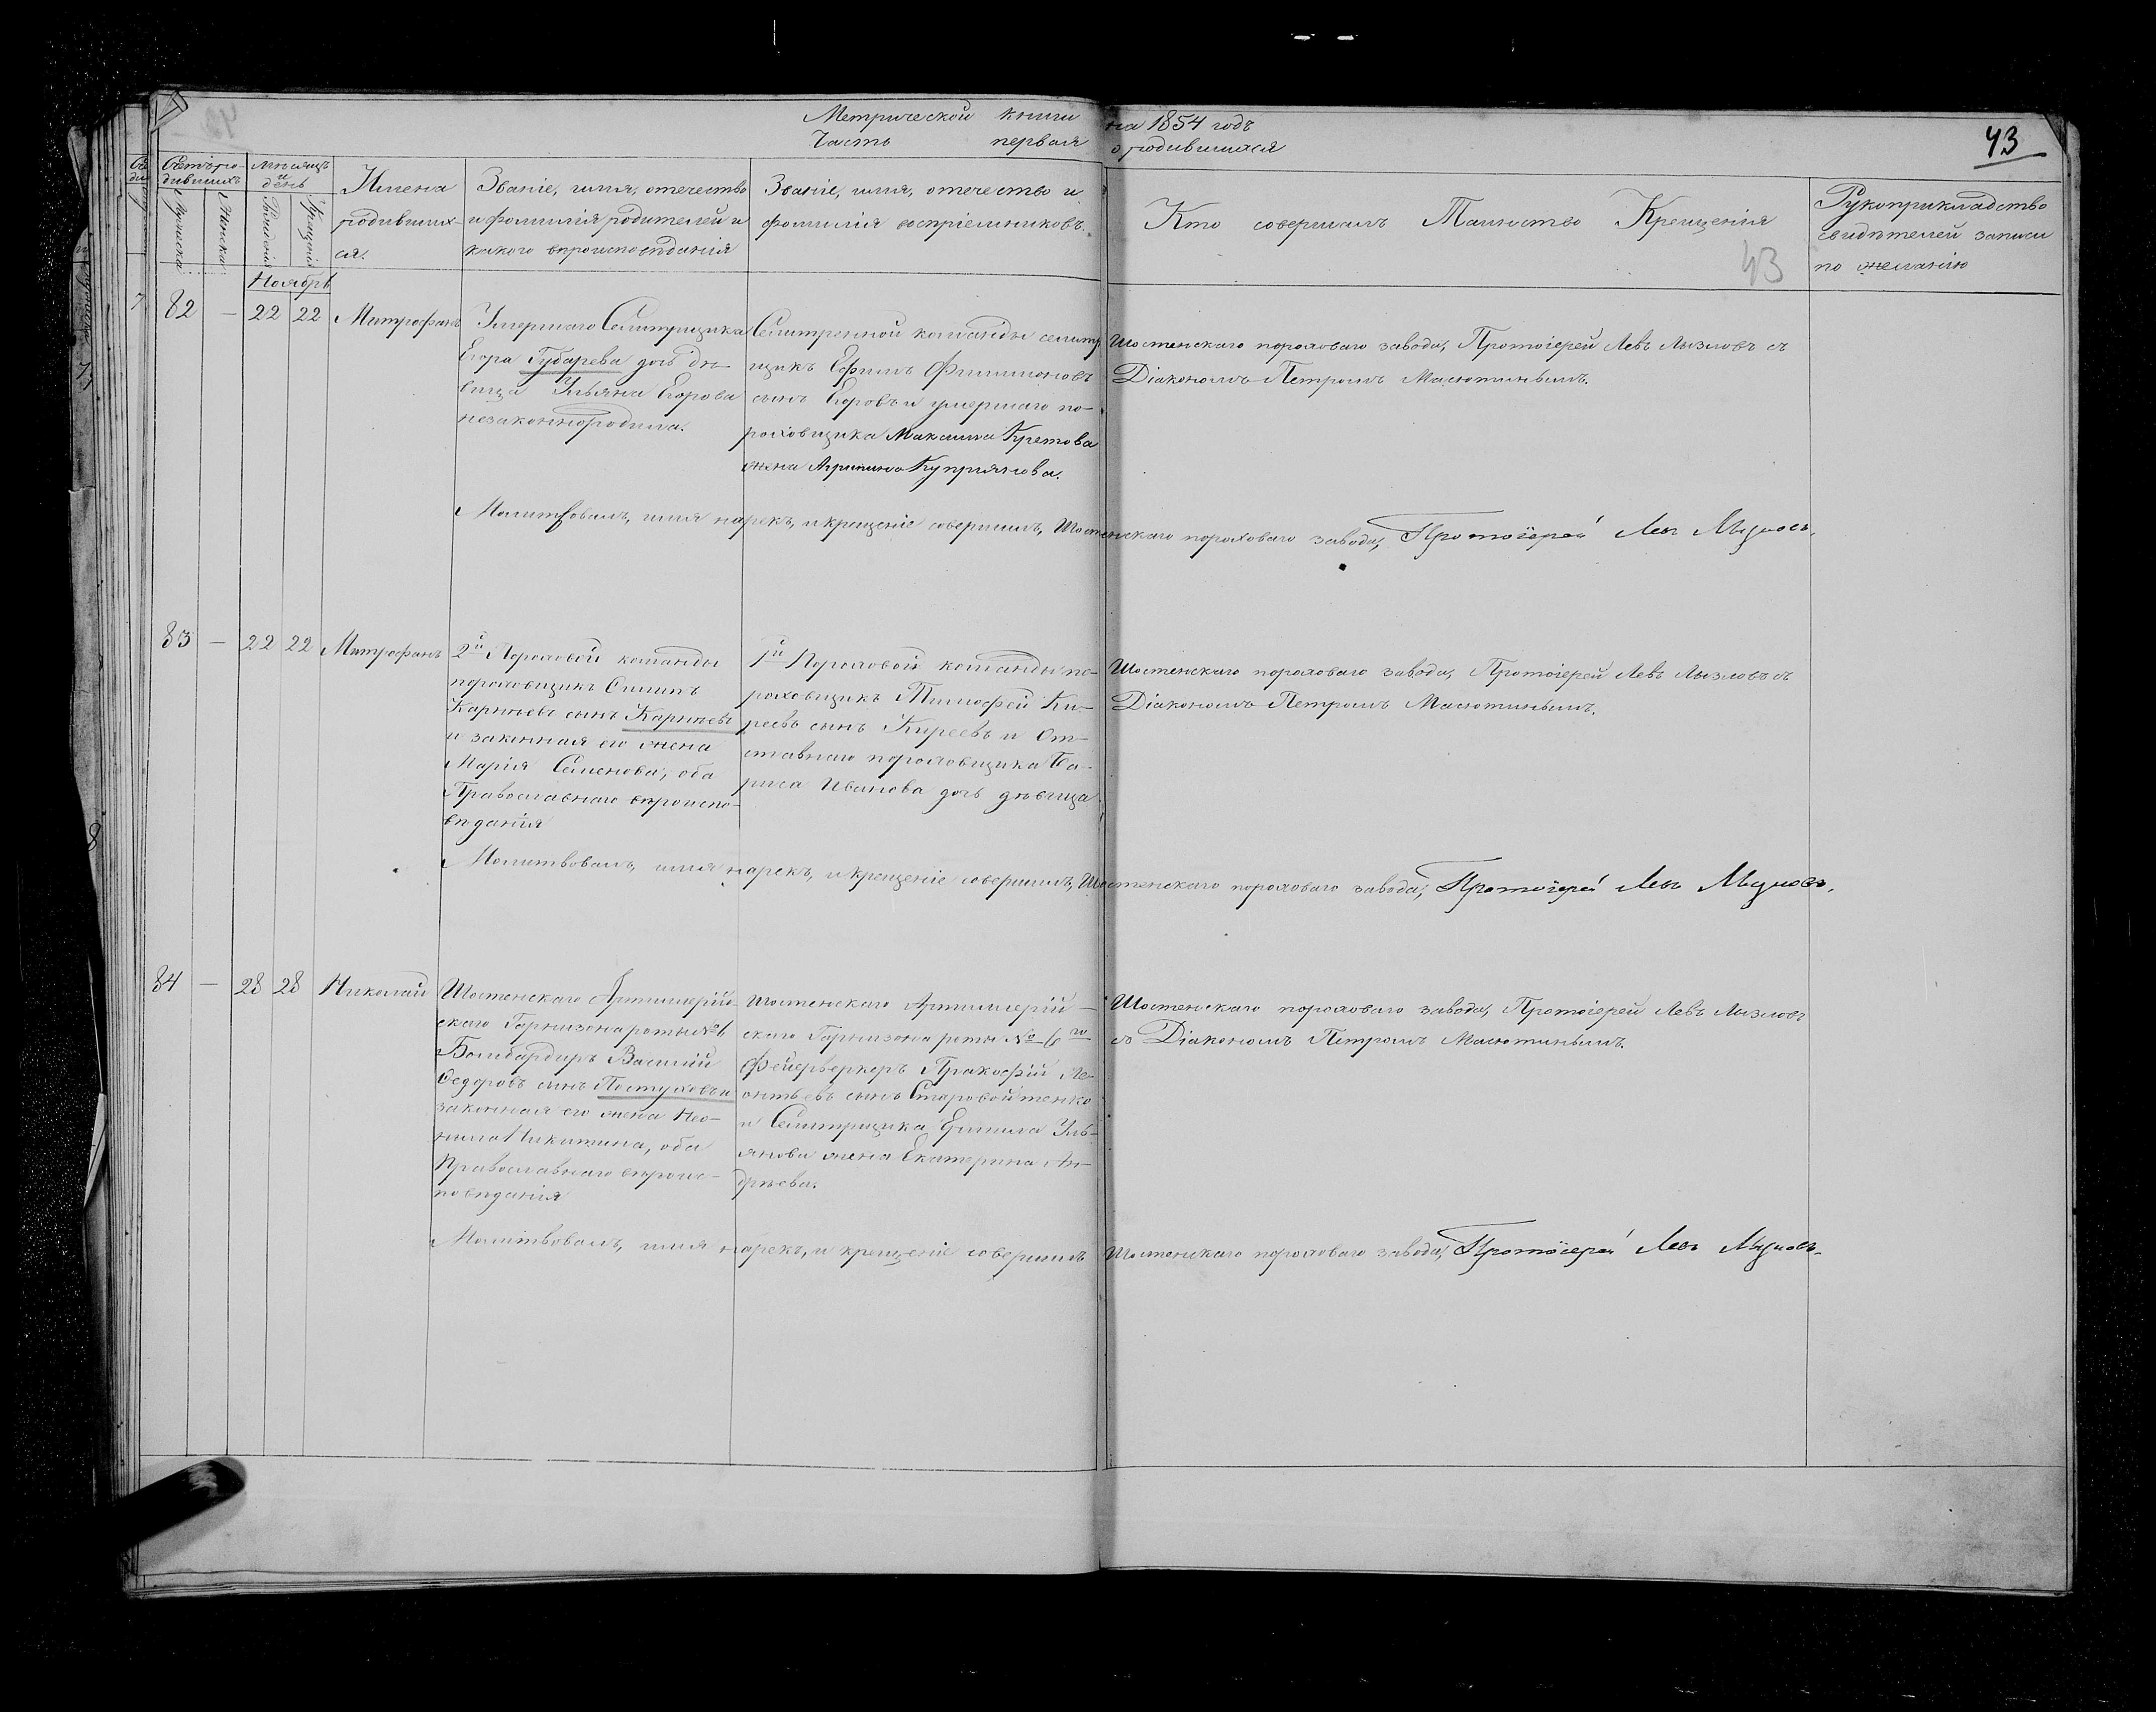 Метрической книги на 1854 годъ
Часть первая о родившихся
43
Счетъ ро-
дившихъ
Мѣсяцъ
и
день
Мужеска
Женска
Рожденія
Крещенія
Имена
родивших-
ся.
Званіе, имя, отечество
и фамилія родителей и
какого вѣроисповѣданія
Званіе, имя, отечество и
фамилія воспріемниковъ.
Кто совершалъ Таинство Крещенія
43
Рукоприкладство
свидѣтелей записи
по желанію
Ноябрь
82 — 22 22 Митрофанъ
Умершаго Селитрщика
Егора Губарева дочь дѣ-
вица Ульяна Егорова
незаконнородила.
Селитренной команды селитр
щикъ Ефимъ Филимоновъ
сынъ Егоровъ и умершаго по-
роховщика Максима Куетова
жена Агрипина Куприянова.
Шостенскаго пороховаго завода, Протоіерей Левъ Лызловъ съ
Діакономъ Петромъ Масютинымъ.
Молитвовалъ, имя нарекъ, и крещеніе совершилъ, Шостенскаго пороховаго завода, Протоіерей Левъ Лызловъ.
83 — 22 22 Митрофанъ
2й Пороховой команды
пороховщикъ Осипъ
Карнѣевъ сынъ Карнѣевъ
и законная его жена
Марія Семенова, оба
Православнаго вѣроиспо-
вѣданія
1й Пороховой команды по-
роховщикъ Тимофей Ки-
реевъ сынъ Киреевъ и От-
ставнаго пороховщика Ба-
риса Иванова дочь дѣвица
Шостенскаго пороховаго завода, Протоіерей Левъ Лызловъ съ
Діакономъ Петромъ Масютинымъ.
Молитвовалъ, имя нарекъ, и крещеніе совершилъ, Шостенскаго пороховаго завода, Протоіерей Левъ Лызловъ.
84 — 28 28 Николай
Шостенскаго Артиллерій-
скаго Гарнизона роты №
Бомбардиръ Василій
Федоровъ сынъ Пастуховъ и
законная его жена Нео-
нила Никитина, оба
Православнаго вѣроис-
повѣданія
Шостенскаго Артиллерій-
скаго Гарнизона роты № 6го
Фейерверкеръ Пракофій Ле-
онтьевъ сынъ Старовойтенко
и Селитрщика Ермила Уль-
янова жена Екатерина Ан-
дрѣева.
Шостенскаго пороховаго завода, Протоіерей Левъ Лызловъ
съ Діакономъ Петромъ Масютинымъ.
Молитвовалъ, имя нарекъ, и крещеніе совершилъ Шостенскаго пороховаго завода, Протоіерей Левъ Лызловъ.